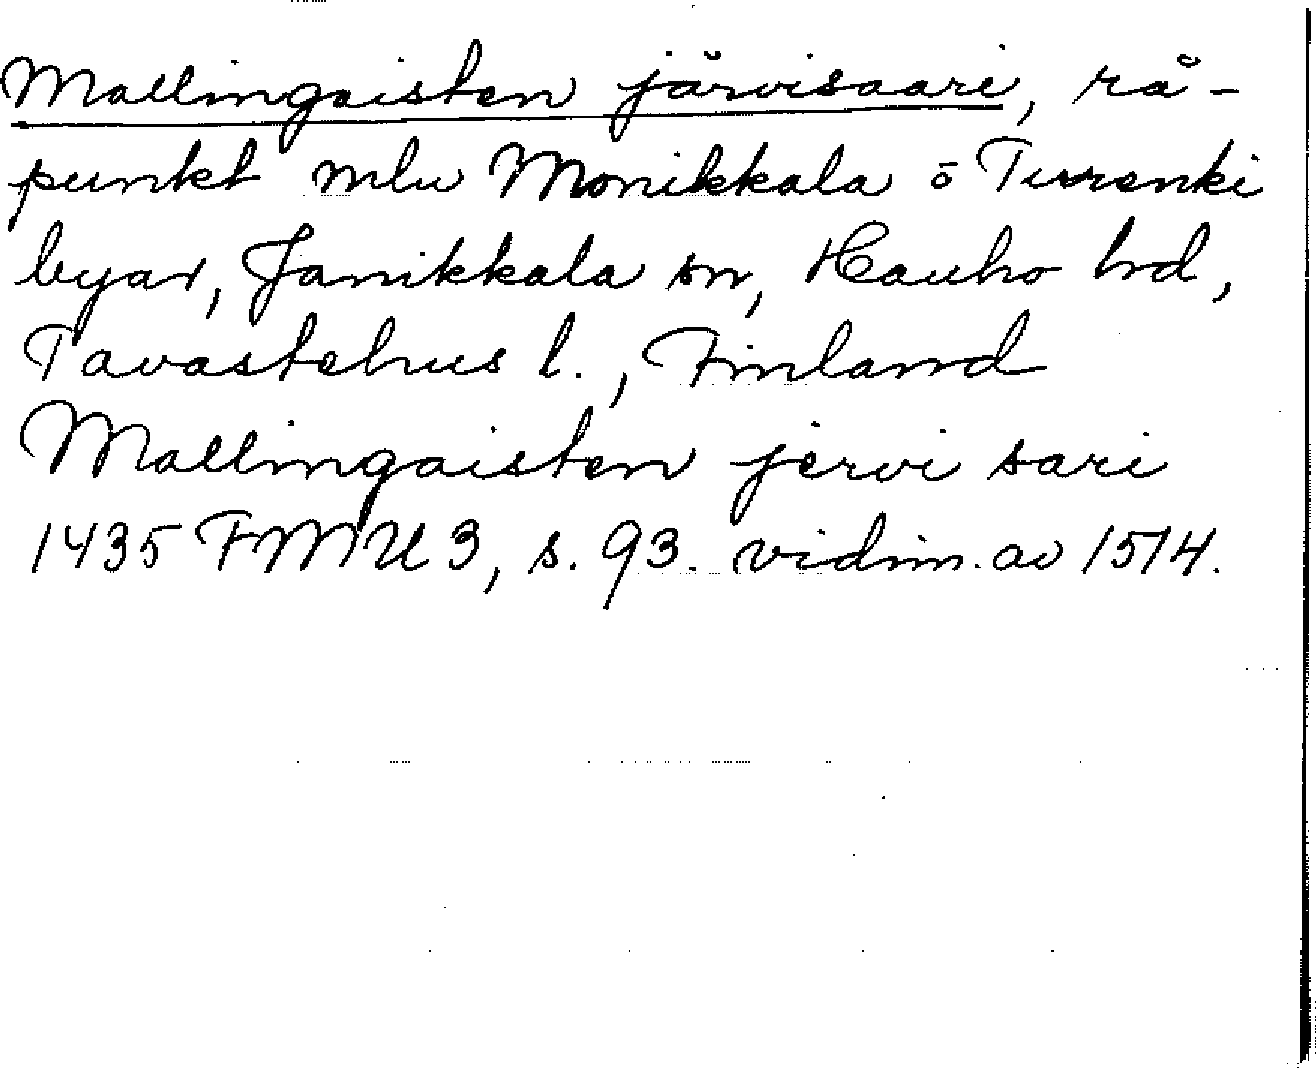 Mallingaisten järvisaari, rå-
punkt mlu Monikkala o Turenki
byar, Janikkala sn, Hauho hd,
Tavastehus l., Finland
Mallingaisten jervi sari
1435 FMU 3, s. 93. vidim. av 1514.